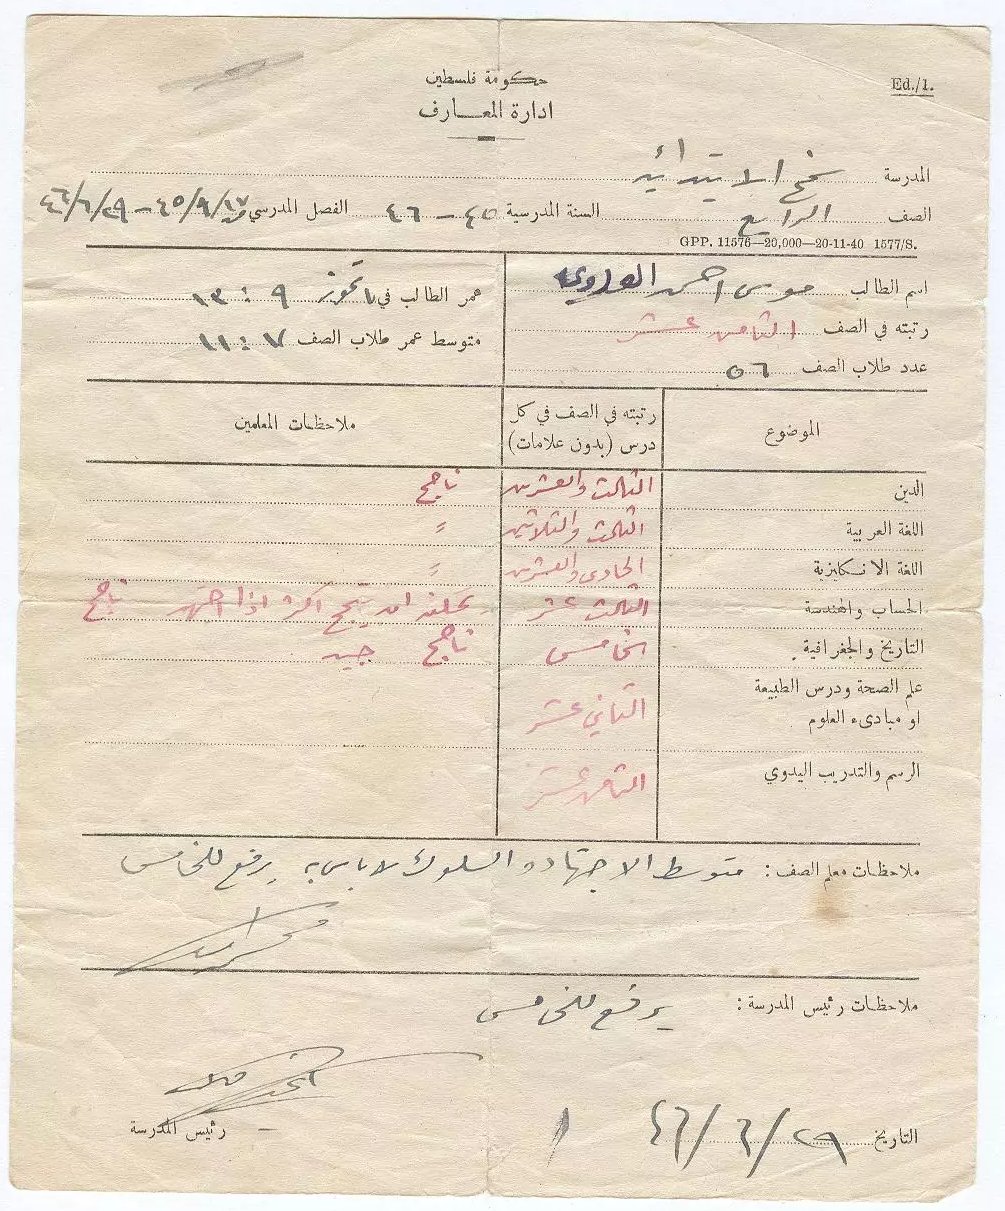 Ed./1.
حكومة فلسطين
ادارة المعارف
المدرسة سمخ الابتدائية
الصف الرابع السنة المدرسية ٤٥ – ٤٦ الفصل المدرسي ٤٥/٩/١٧ – ٤٦/٦/٢٩
GPP. 11576—20,000—20-11-40 1577/S.
اسم الطالب موسى احمد
رتبته في الصف الثامن عشر
عدد طلاب الصف ٥٦
عمر الطالب في ١ تموز ٩ : ١٣
متوسط عمر طلاب الصف ٧ : ١١
الموضوع رتبته في الصف في كل درس (بدون علامات) ملاحظات المعلمين
الدين الثالث والعشرين ناجح
اللغة العربية الثالث والثلاثين "
اللغة الانكليزية الحادي والعشرين "
الحساب والهندسة الثالث عشر يمكنه ان ينجح اكثر اذا اجتهد ناجح
التاريخ والجغرافية الخامس ناجح جيد
علم الصحة ودرس الطبيعة
او مبادىء العلوم الثاني عشر
الرسم والتدريب اليدوي الثامن عشر
ملاحظات معلم الصف : متوسط الاجتهاد والسلوك لا باس به يرفع للخامس
ملاحظات رئيس المدرسة : يرفع للخامس
رئيس المدرسة
التاريخ ٤٦/٦/٢٩